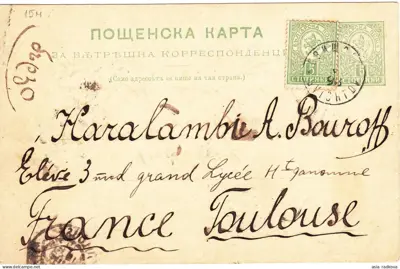 15H
ПОЩЕНСКА КАРТА
ЗА ВѪТРѢШНА КОРРЕСПОНДЕНЦИЯ
(Само адрессътъ се пише на тая страна).
Haralambi A. Bouroff
Elève 3 md grand Lycée
France Toulouse
asia radkova